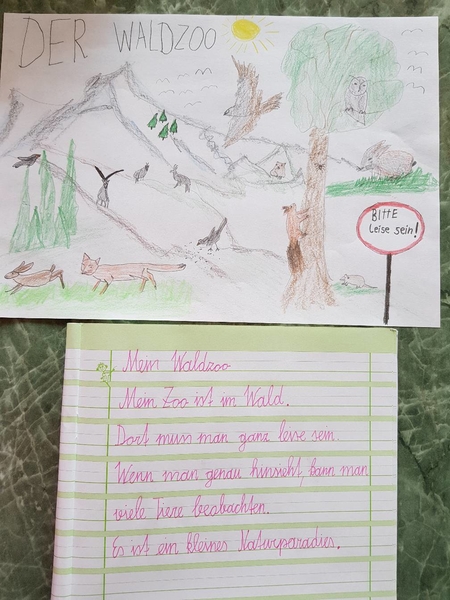 DER WALDZOO
BITTE
leise sein!
Mein Waldzoo
Mein Zoo ist im Wald.
Dort muss man ganz leise sein.
Wenn man genau hinsieht, kann man
viele Tiere beobachten.
Es ist ein kleines Naturparadies.